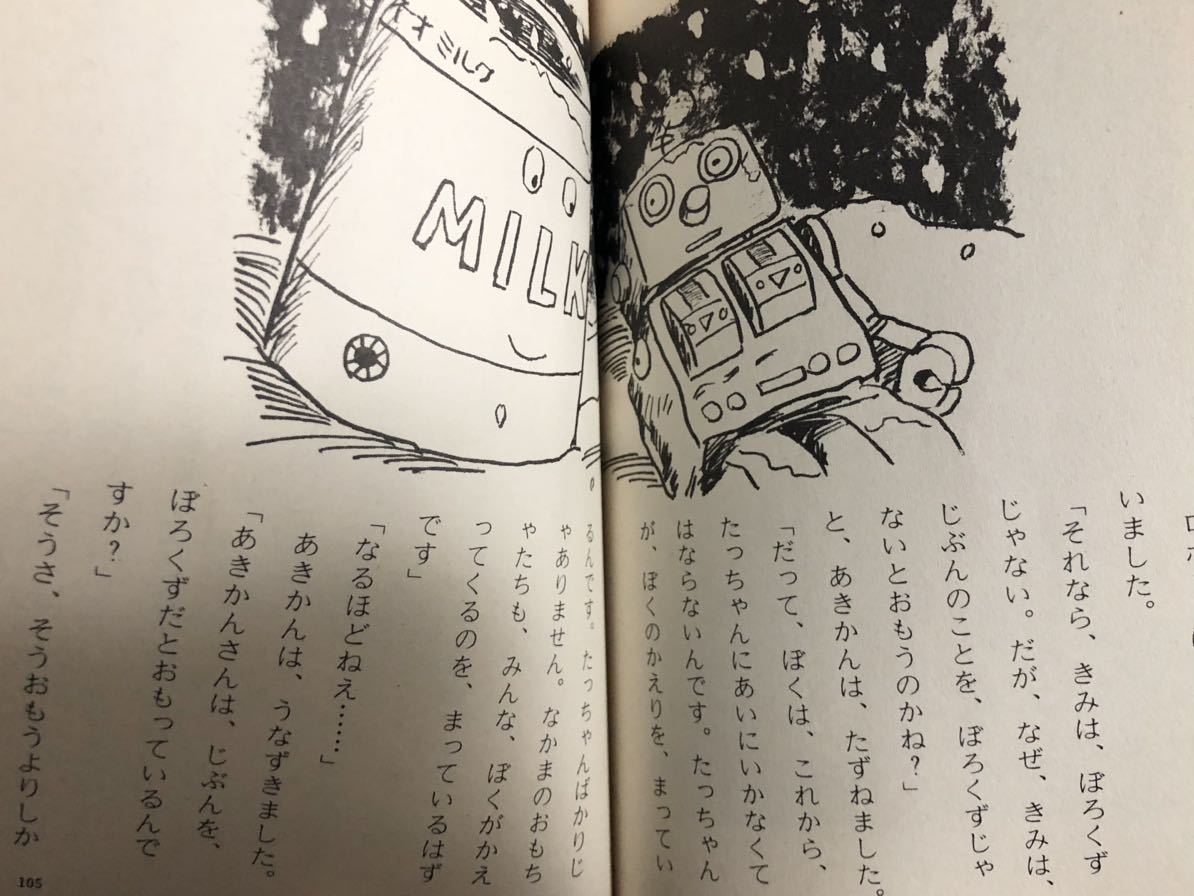 いました。
「それなら、きみは、ぼろくず
じゃない。だが、なぜ、きみは、
じぶんのことを、ぼろくずじゃ
ないとおもうのかね？」
と、あきかんは、たずねました。
「だって、ぼくは、これから、
たっちゃんにあいにいかなくて
はならないんです。たっちゃん
が、ぼくのかえりを、まってい
るんです。たっちゃんばかりじ
ゃありません。なかまのおもち
ゃたちも、みんな、ぼくがかえ
ってくるのを、まっているはず
です」
「なるほどねえ……」
あきかんは、うなずきました。
「あきかんさんは、じぶんを、
ぼろくずだとおもっているんで
すか？」
「そうさ、そうおもうよりしか
オミルク
MILK
105